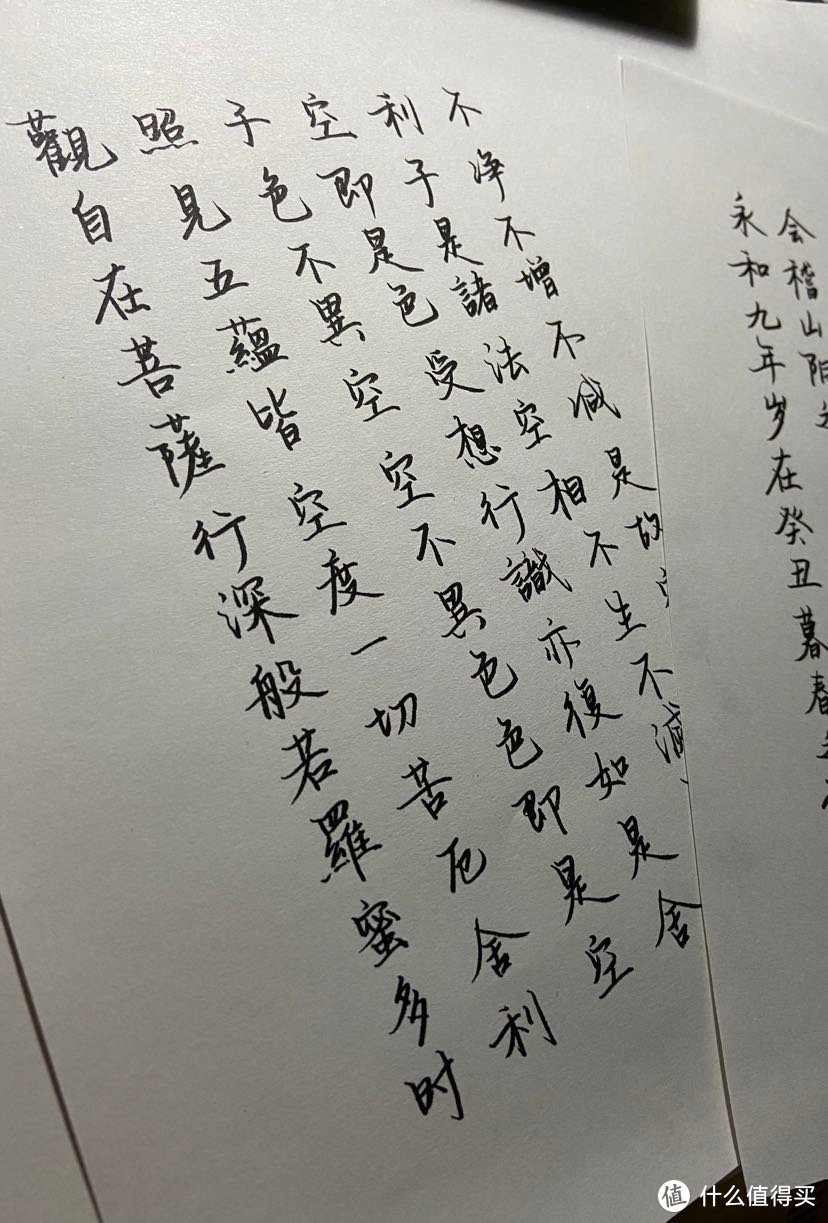 觀自在菩薩行深般若羅蜜多时
照見五蘊皆空度一切苦厄舍利
子色不異空空不異色色即是空
空即是色受想行識亦復如是舍
利子是諸法空相不生不滅
不净不增不减是故
永和九年岁在癸丑暮春之
会稽山阴
值 什么值得买